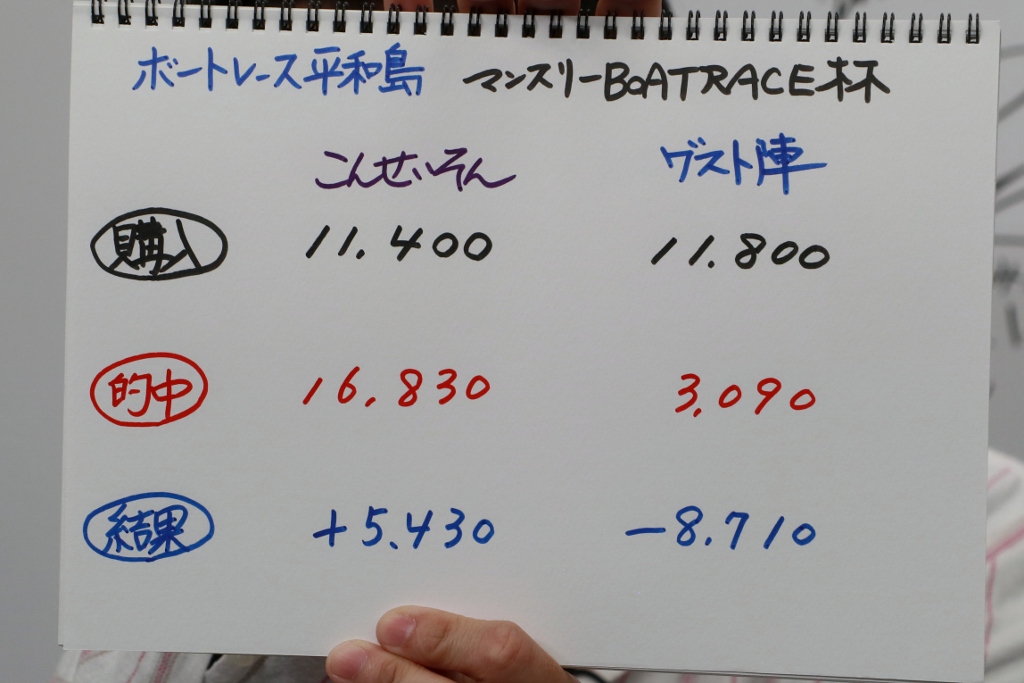 ボートレース平和島 マンスリーBOATRACE杯
こんせいそん ゲスト陣
購入 11.400 11.800
的中 16.830 3.090
結果 +5.430 -8.710